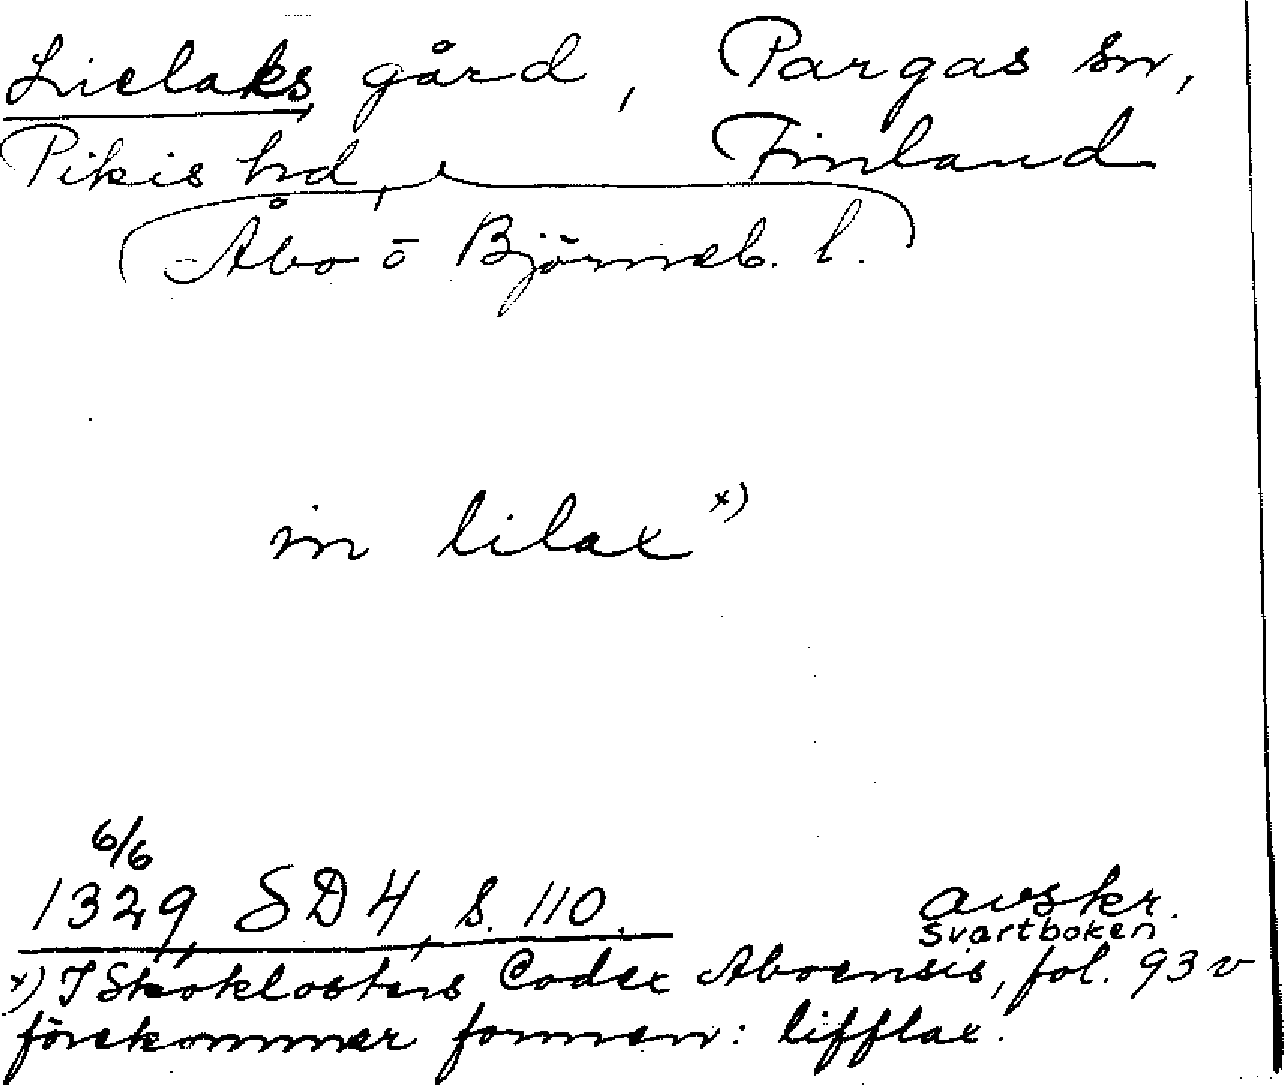 Lielaks gård, Pargas sn,
Pikis hd, Finland
Åbo o Björneb. l.
in lilax x)
6/6
1329, SD 4, s. 110. avskr.
Svartboken
x) I Skoklosters Codex Aboensis, fol. 93 v
förekommer formen: lifflax.